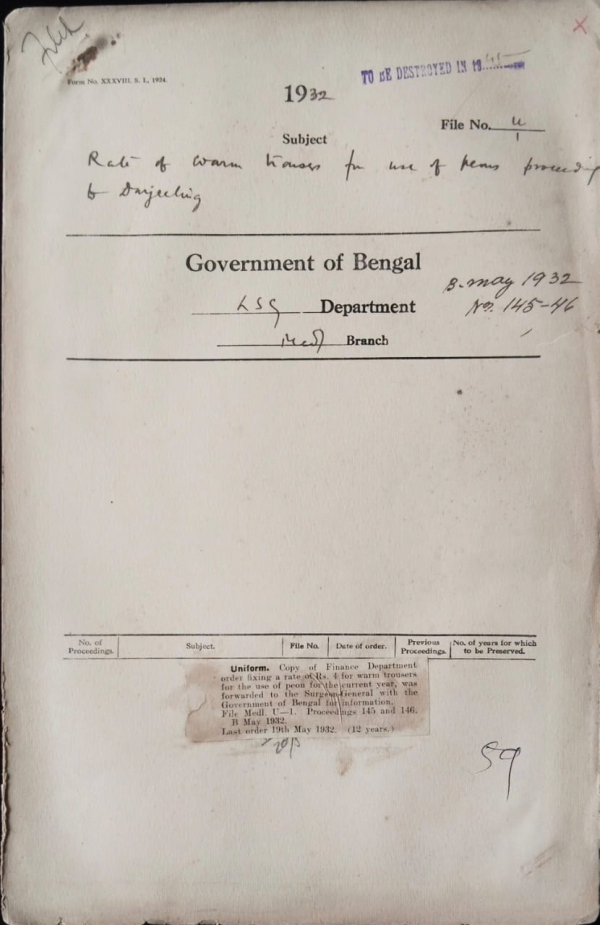 Form No. XXXVIII. S. L., 1924.
TO BE DESTROYED IN 19
1932
File No. U
1
Subject
Rate of warm trousers for use of peons proceeding
to Darjeeling
Government of Bengal
B. May 1932
LSG Department
No. 145-46
Medl Branch
No. of Proceedings. Subject. File No. Date of order. Previous Proceedings. No. of years for which to be Preserved.
Uniform. Copy of Finance Department
order fixing a rate of Rs. 4 for warm trousers
for the use of peon for the current year, was
forwarded to the Surgeon General with the
Government of Bengal for information.
File Medl. U—1. Proceedings 145 and 146.
B May 1932.
Last order 19th May 1932. (12 years.)